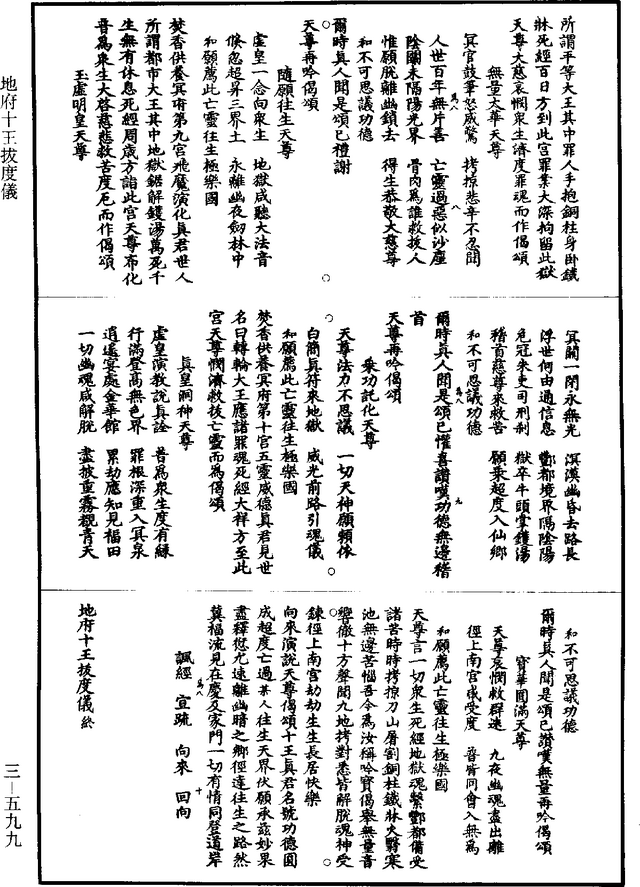 地府十王拔度儀
三—五九九
所謂平等大王其中罪人手抱銅柱身臥鐵
牀死經百日方到此宮罪業大深拘留此獄
天尊大慈哀憫衆生濟度罪魂而作偈頌
無量太華天尊
冥官鼓筆怒威驚　拷掠悲辛不忍聞
人世百年無片善　亡靈過惡似沙塵
陰關未隔陽光界　骨肉爲誰救拔人
惟願脫離幽鎖去　得生恭敬大慈尊
和不可思議功德
爾時真人聞是頌已禮謝
天尊再吟偈頌
隨願往生天尊
虛皇一念向衆生　地獄咸聽大法音
倏忽超昇三界土　永離幽夜劒林中
和願薦此亡靈往生極樂國
焚香供養冥府第九宮飛魔演化真君世人
所謂都市大王其中地獄鋸解鑊湯萬死千
生無有休息死經周歲方詣此宮天尊布化
音爲衆生大啓慈悲救苦度厄而作偈頌
玉虛明皇天尊
冥關一閉永無光　溟漠幽昏去路長
浮世何由通信息　酆都境界隔陰陽
危冠朱吏司刑制　獄卒牛頭掌鑊湯
稽首慈尊來救苦　願乘超度入仙鄉
和不可思議功德
爾時真人聞是頌已懽喜讚嘆功德無邊稽
首
天尊再吟偈頌
乘功託化天尊
天尊法力不思議　一切天神願頼依
白簡真符來地獄　威光前路引魂儀
和願薦此亡靈往生極樂國
焚香供養冥府第十宮五靈威德真君見世
名曰轉輪大王應諸罪魂死經大祥方至此
宮天尊憫濟救拔亡靈而爲偈頌
真皇洞神天尊
虛皇演教說真詮　普爲衆生度有緣
行滿登高無色界　罪根深重入冥泉
逍遙宴處金華館　累劫應知見福田
一切幽魂咸解脫　盡披重霧覩青天
和不可思議功德
爾時真人聞是頌已讚嘆無量再吟偈頌
寶華圓滿天尊
天尊哀憫救群迷　九夜幽魂盡出離
徑上南宮咸受度　普皆同會入無爲
和願薦此亡靈往生極樂國
天尊言一切衆生死經地獄魂繫酆都備受
諸苦時時拷掠刀山屠割銅柱鐵牀火翳寒
池無邊苦惱吾今爲汝稱吟寶偈舉無量音
響徹十方聲聞九地拷對悉皆解脫魂神受
鍊徑上南宮劫劫生生長居快樂
向來演說天尊偈頌十王真君名號功德圓
成超度亡過某人往生天界伏願承茲妙果
盡釋愆尤遠離幽暗之鄉徑達往生之路然
冀福流見在慶及家門一切有情同登道岸
諷經　宣疏　向來　回向
地府十王拔度儀終